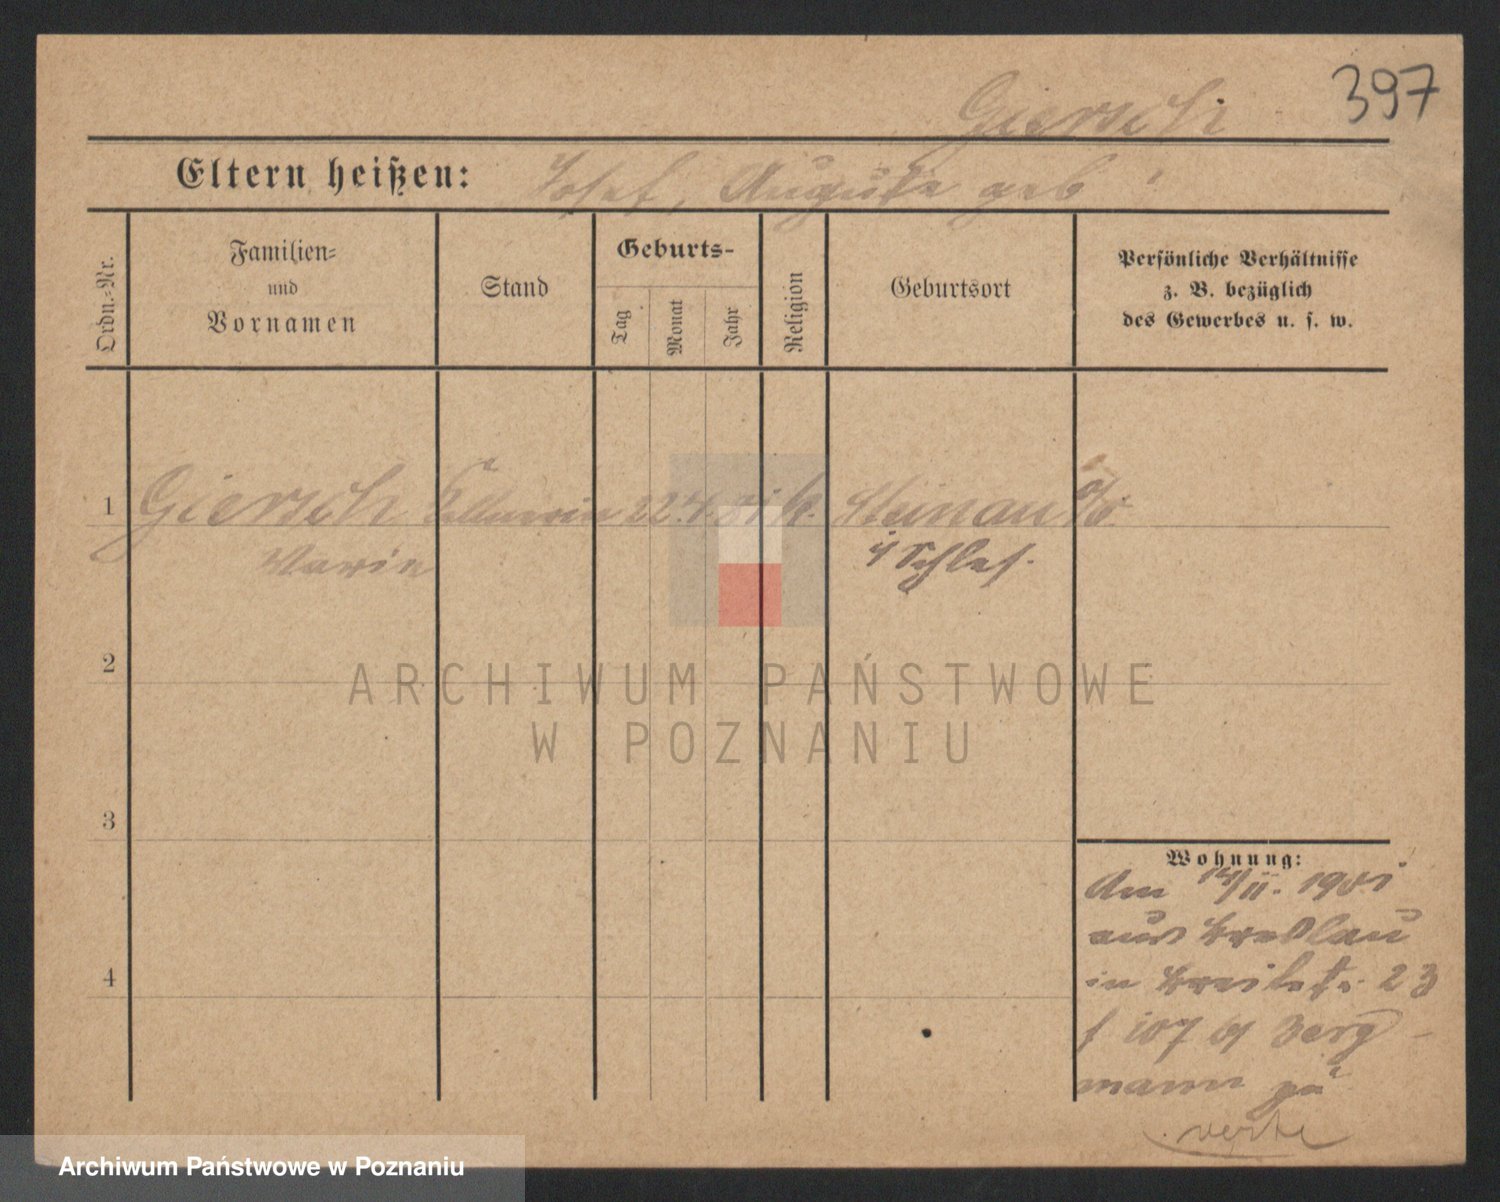 397
Giersch
Eltern heißen: Josef, Auguste geb
Ordn.=Nr.
Familien=
und
Vornamen
Stand
Geburts-
Tag
Monat
Jahr
Religion
Geburtsort
Persönliche Verhältnisse
z. B. bezüglich
des Gewerbes u. s. w.
1 Giersch Kellnerin 22. 4. 81 k. Steinau o/o.
Marie
i/ Schles.
2
ARCHIWUM PAŃSTWOWE
W POZNANIU
3
Wohnung:
Am 14/II. 1901
aus Breslau
in Breitestr. 23
Berg
mann
verte
4
Archiwum Państwowe w Poznaniu